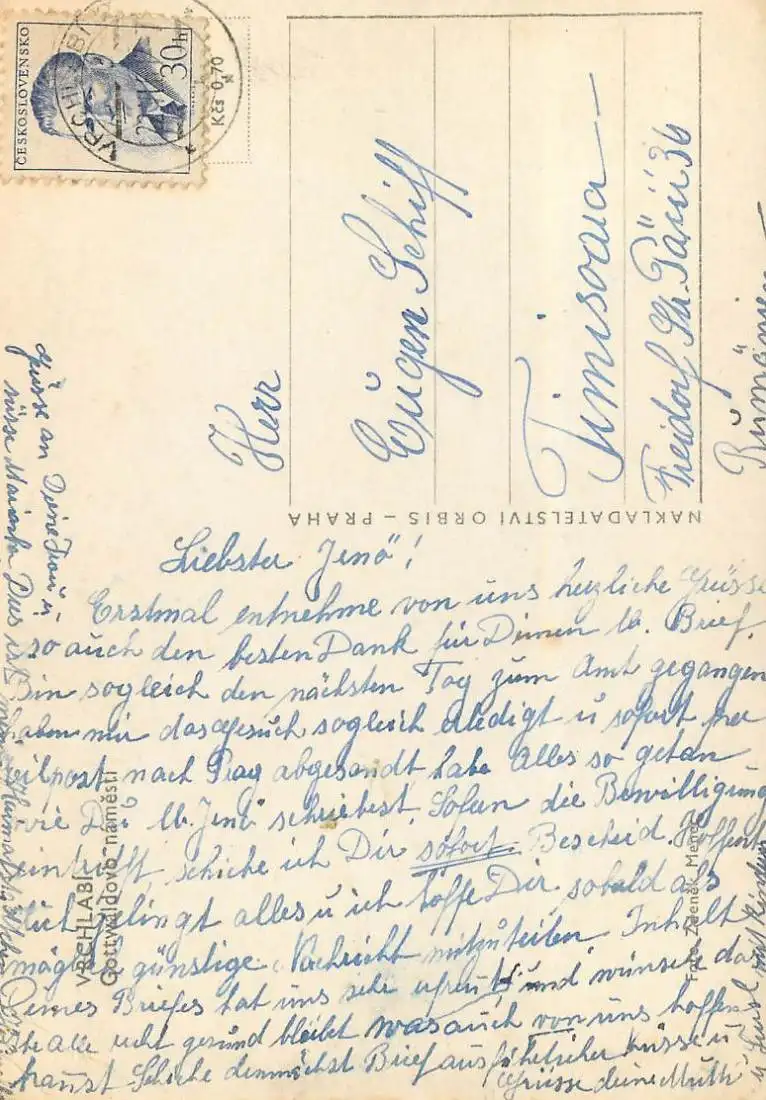 ČESKOSLOVENSKO
30h
VRCHLABÍ
Kčs 0,70
Herr
Eugen Schiff
Timisoara
Freidorf Str. Parii 36
Rumänien
NAKLADATELSTVÍ ORBIS – PRAHA
Liebster Jenö!
Erstmal entnehme von uns herzliche Grüsse
so auch den besten Dank für Deinen lb. Brief.
Bin sogleich den nächsten Tog zum Amt gegangen
haben mir das Gesuch sogleich erledigt u sofort per
Eilpost nach Prag abgesandt habe Alles so getan
wie Du lb. Jenö schriebst. Sofern die Bewilligung
eintrifft, schicke ich Dir sofort Bescheid. Hoffent
lich gelingt alles u ich hoffe Dir sobald als
möglich günstige Nachricht mitzuteilen. Inhalt
Deines Briefes hat uns sehr erfreut und wünsche das
Ihr alle recht gesund bleibt was auch von uns hoffen
kannst Schicke demnächst Brief ausführlicher Küsse u
Grüsse deine Mutti
u mit Kindern
Grüsse an Deine Frau u.
Dies ist
VRCHLABÍ
Gottwaldovo náměstí
Foto Zdeněk Menec